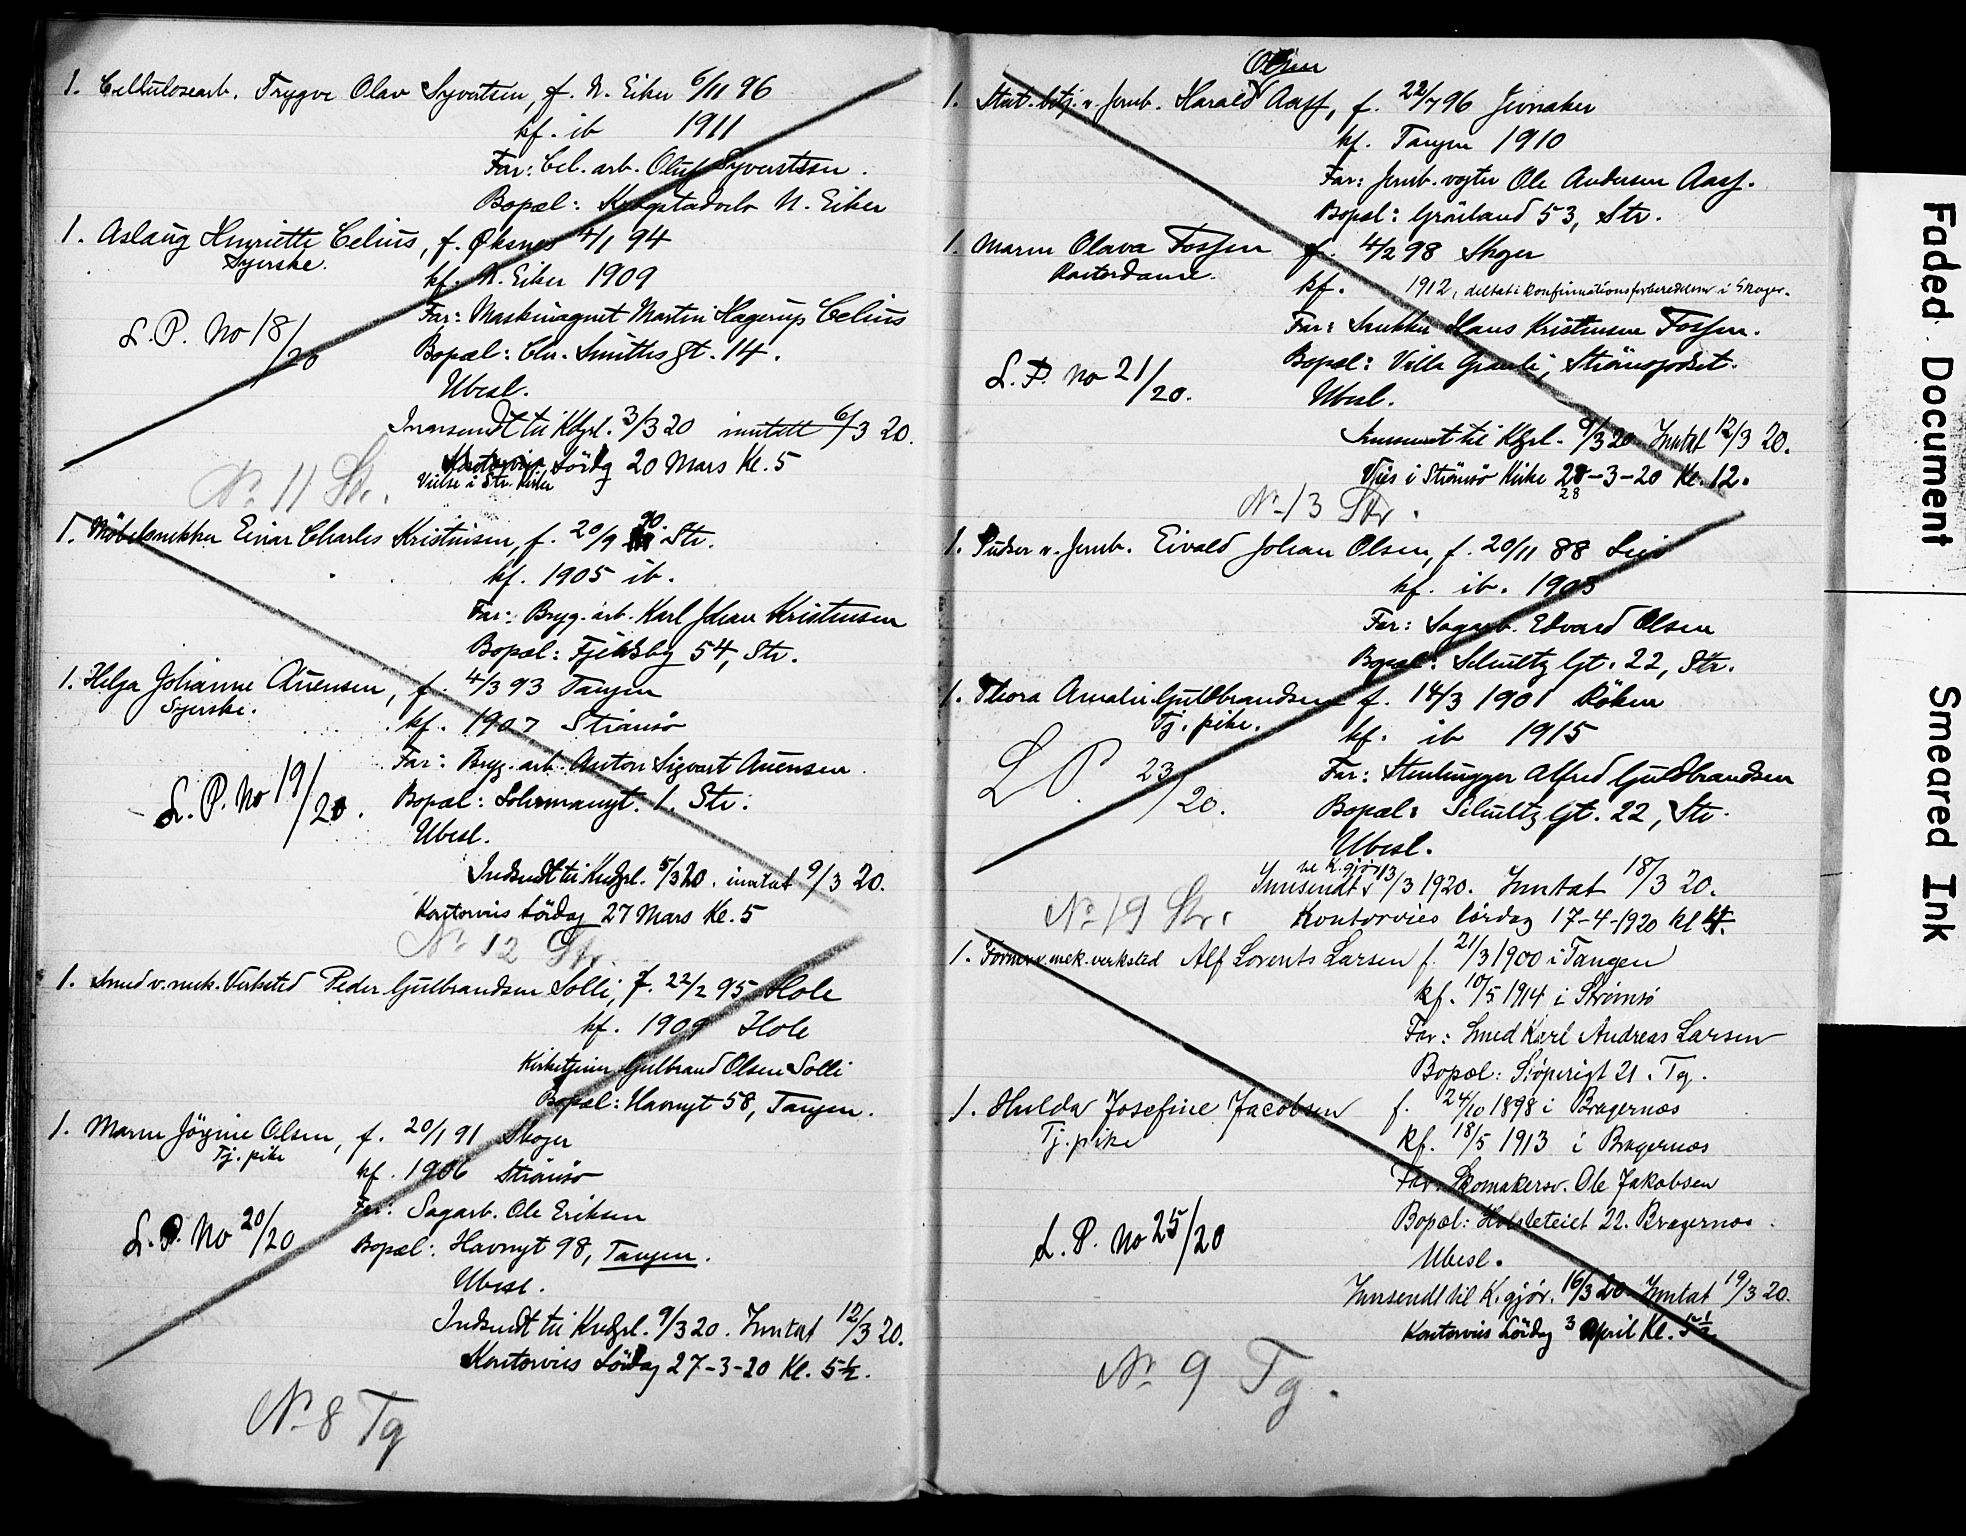 1. Cellulosearb. Trygve Olav Syvertsen, f. N. Eiker 6/11 96
kf. ib 1911
Far: Cel. arb. Oluf Syvertsen.
Bopæl: N. Eiker
1. Aslaug Henriette Celius, f. Øksnes 4/1 94
Syerske.
kf. N. Eiker 1909
Far: Maskinagent Martin Hagerup Celius
L. P. No 18/20
Bopæl: Chr. Smithsgt. 14.
Ubesl.
til Kdgl. 3/3 20 inntatt 6/3 20.
Lördg 20 Mars Kl. 5
Vielse i Str. Kirke
No 11 Str.
1. Möbelsnekker Einar Charles Kristensen, f. 20/9 90 Str.
kf. 1905 ib.
Far: Bryg. arb. Karl Johan Kristensen
Bopæl: Fjeldsby 54, Str.
1. Helga Johanne Auensen, f. 4/3 93 Tangen
Syerske.
kf. 1907 Strömsö
Far: Bryg. arb. Anton Sigvart Auensen
L. P. No 19/20.
Bopæl: Sohrmansgt. 1. Str.
Ubesl.
Indsendt til Kndgl. 5/3 20. inntat 9/3 20.
Kontorvies Lördag 27 Mars Kl. 5
No 12 Str.
1. Smed v. mek. Verksted Peder Gulbrandsen Solli, f. 22/2 95 Hole
kf. 1909 Hole
Kirketjener Gulbrand Olsen Solli
Bopæl: Havnegt 58, Tangen.
1. Maren Jörgine Olsen, f. 20/1 91 Skoger
Tj. pike
kf. 1906 Strömsö
Far: Sagarb. Ole Eriksen
L. P. No 20/20
Bopæl: Havnegt 98, Tangen.
Ubesl.
Indsendt til Kndgl. 9/3 20. Inntat 12/3 20.
Kontorvies Lördag 27-3-20 Kl. 5½.
No 8 Tg
Olsen
1. Stat. betj. v. Jernb. Harald Aass, f. 22/7 96 Jevnaker
kf. Tangen 1910
Far: Jernb. vogter Ole Andersen Aass.
Bopæl: Grönland 53, Str.
1. Maren Olava Fossen f. 4/2 98 Skoger
Kontordame.
kf. 1912, deltat i konfirmationsforberedelsen i Skoger.
Far: Snekker Hans Kristensen Fossen.
Bopæl: Villa Granli, Strömsgodset.
L. P. No 21/20.
Ubesl.
Innsendt til Kgl. 9/3 20 Inntat 12/3 20.
Vies i Strömsö Kirke 28-3-20 Kl. 12.
28
No 13 Str.
1. Pudser v. Jernb. Eivald Johan Olsen, f. 20/11 88 Lier
kf. ib. 1903
Far: Sagarb. Edvard Olsen
Bopæl: Schultz Gt. 22, Str.
1. Thora Amalie Guldbrandsen f. 14/3 1901 Röken
Tj. pike.
kf. ib 1915
L P. 23/20.
Far: Stenhugger Alfred Guldbrandsen
Bopæl: Schultz Gt. 22, Str.
Ubesl.
K. gjör 13
Innsendt /3 1920. Inntat 18/3 20.
No 19 Str.
Kontorvies lördag 17-4-1920 kl 4.
1. Former v. mek. verksted Alf Lorents Larsen f. 21/3 1900 i Tangen
kf. 10/5 1914 i Strømsø
Far: Smed Karl Andreas Larsen
Bopæl: 21. Tg.
1. Hulda Josefine Jacobsen f. 24/10 1898 i Bragernæs
Tj. pike
kf. 18/5 1913 i Bragernæs
Far: Skomakersv. Ole Jakobsen
Bopæl: 22. Bragernæs.
L. P. No 25/20
Ubesl.
Innsendt til K. gjör. 16/3 20. Inntat 19/3 20.
Kontorvies Lördag 3 April Kl. 5½
No 9 Tg.
Faded Document
Smeared Ink